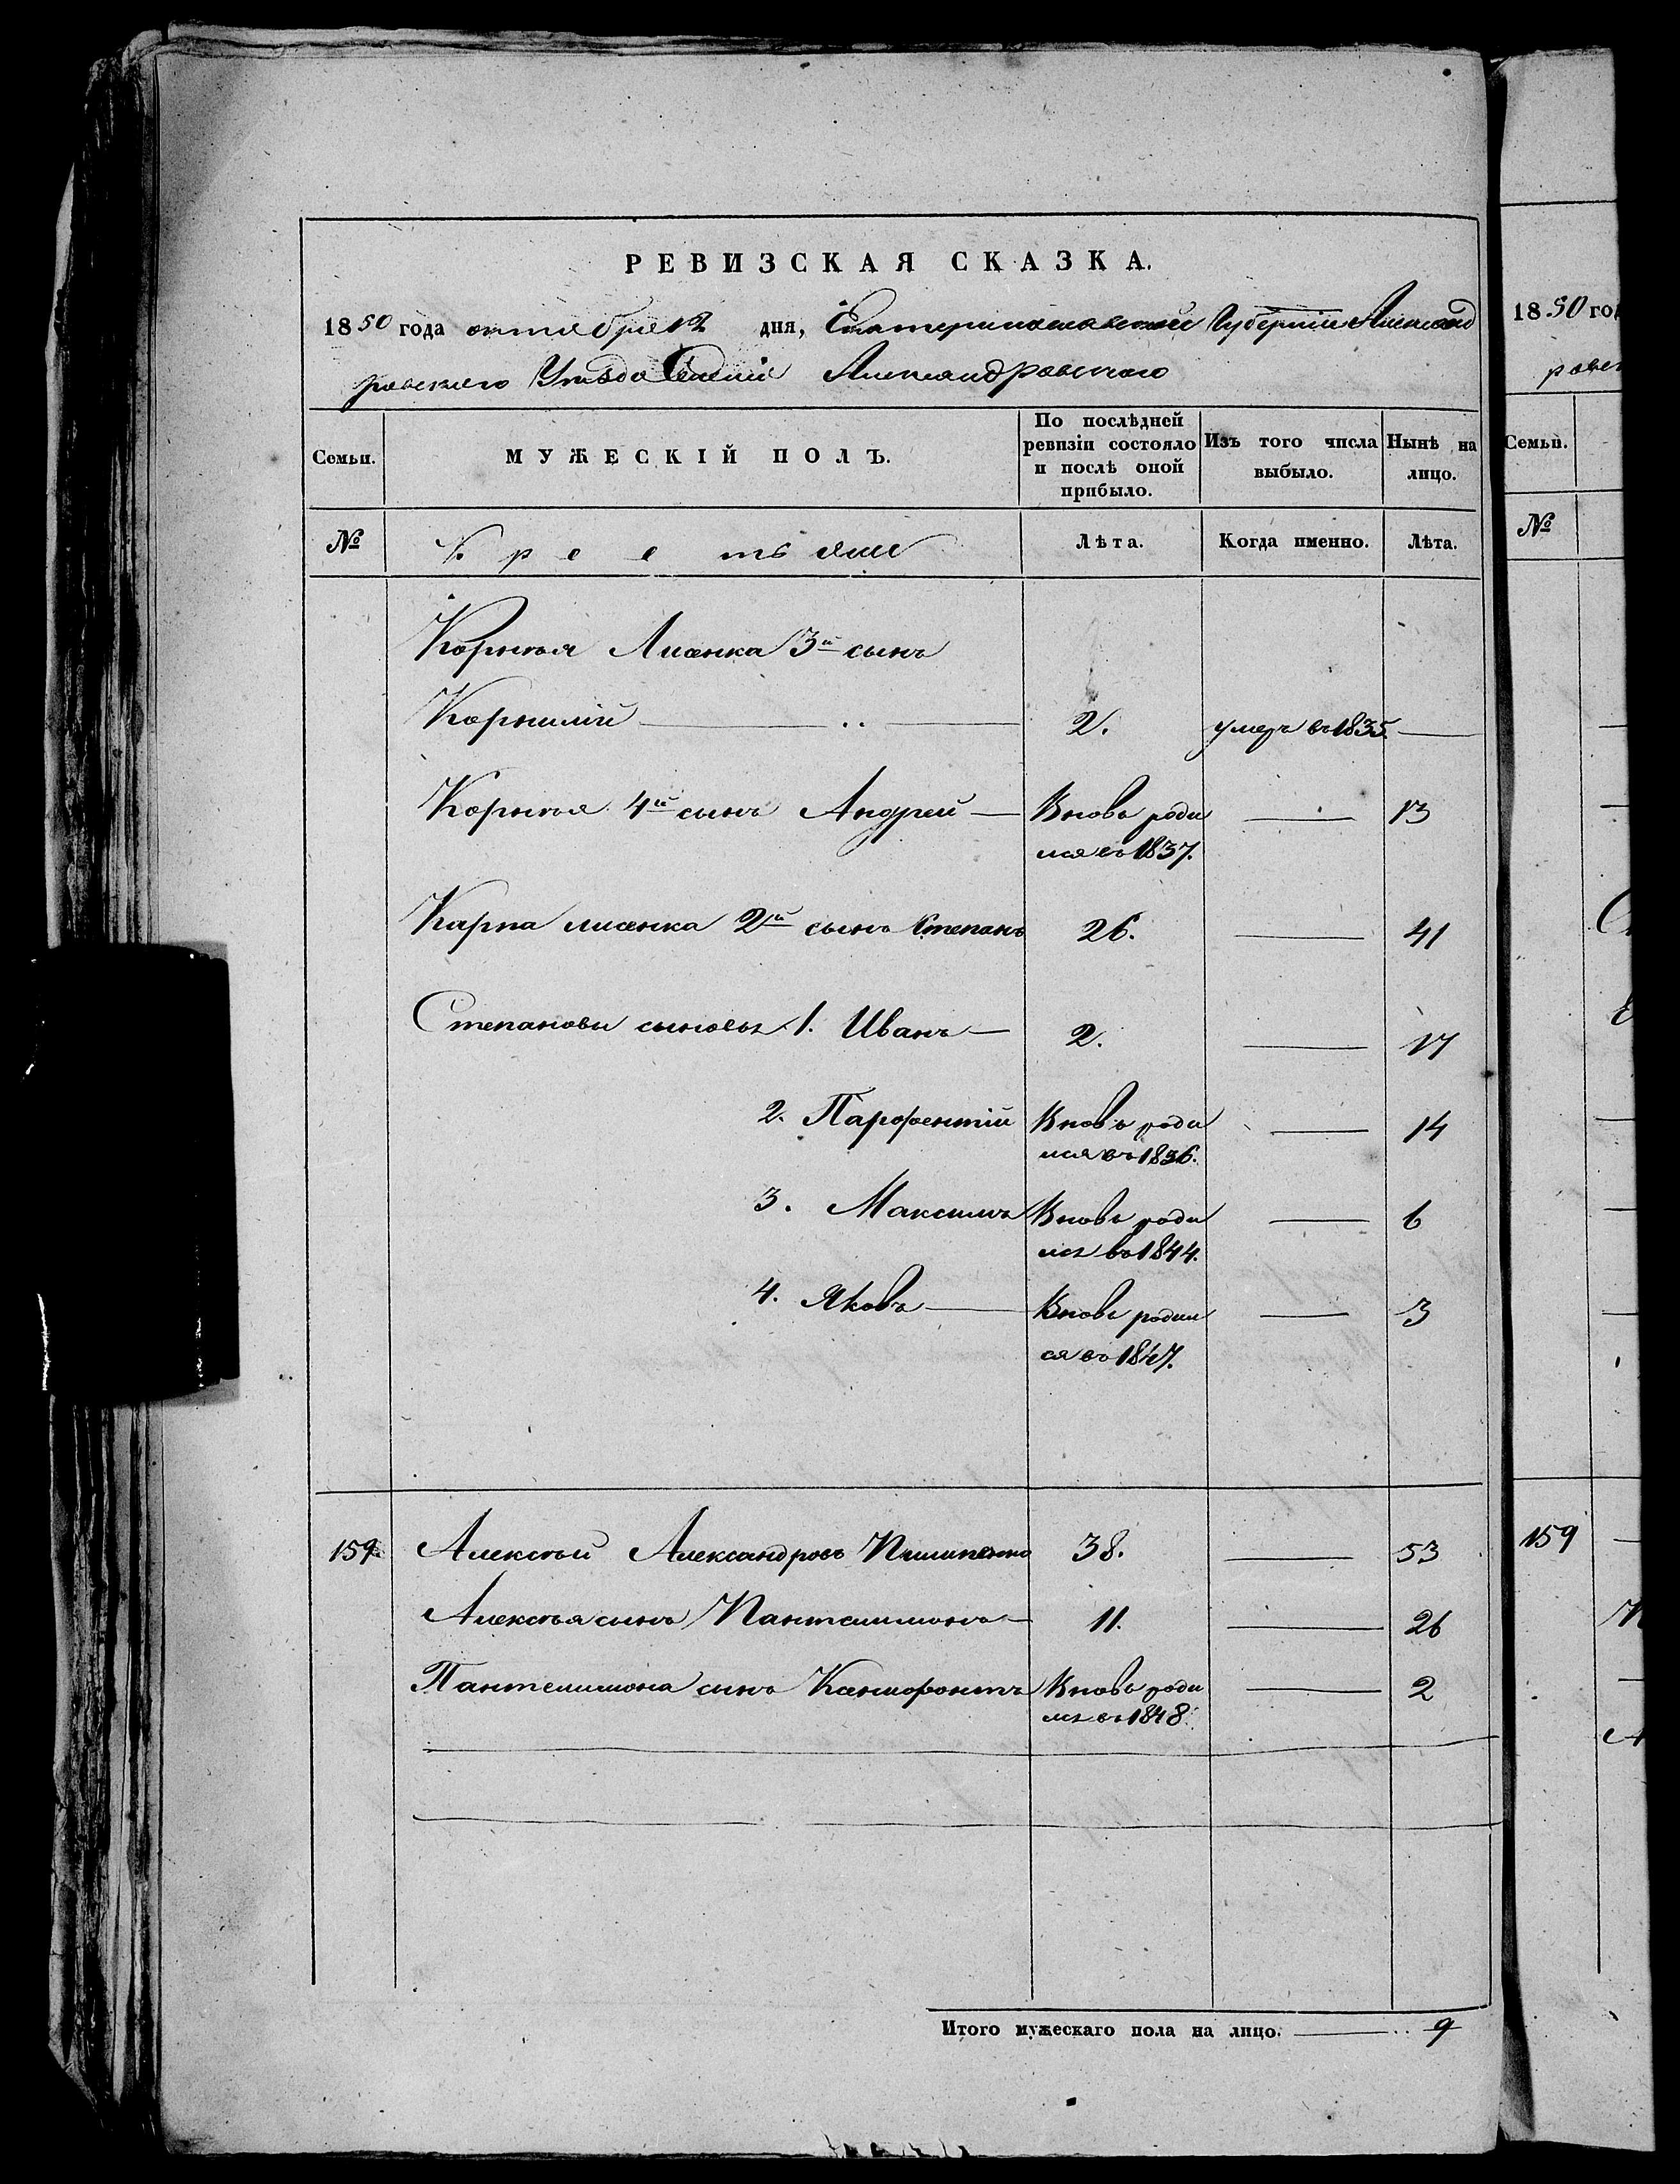 РЕВИЗСКАЯ СКАЗКА.
1850 года октября 12 дня, Екатеринославской Губерніи Александ
ровскаго Уѣзда Селеніе Александровскаго
Семьи.
МУЖЕСКІЙ ПОЛЪ.
По послѣдней ревизіи состояло и послѣ оной прибыло.
Изъ того числа выбыло.
Нынѣ на лицо.
№ Крестьяне Лѣта. Когда именно. Лѣта.
Корнѣя Лисенка 3й сынъ
Корнилій 2. умеръ въ 1835.
Корнѣя 4й сынъ Андрей Вновь роди 13
лся въ 1837.
Карпа лисенка 2й сынъ Степанъ 26. 41
Степановы сыновья 1. Иванъ 2. 17
2. Парфентій Вновь роди 14
лся въ 1836.
3. Максимъ Вновь роди 6
лся въ 1844.
4. Яковъ Вновь родил 3
ся въ 1847.
159. Алексѣй Александровъ 38. 53
Алексѣя сынъ Пантелимонъ 11. 26
Пантелимона сынъ Ксенофонтъ Вновь роди 2
лся въ 1848.
Итого мужескаго пола на лицо. 9
1850 го
ровск
Семьи.
№
159